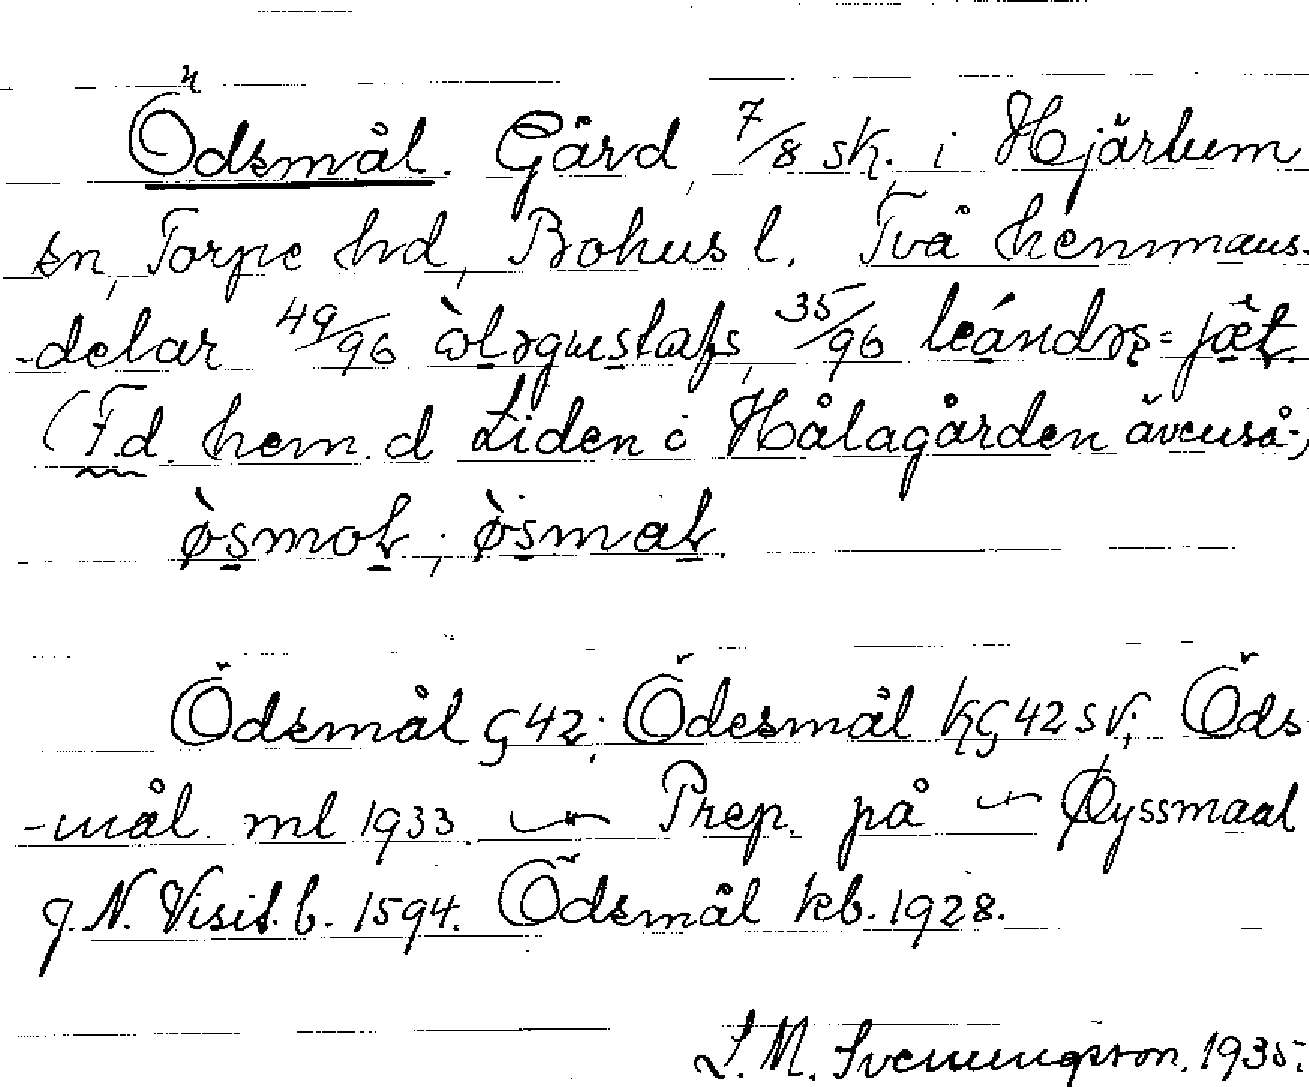 Ödsmål. Gård, 7/8 sk. i Hjärtum
sn, Torpe hd, Bohus l. Två hemmans-
-delar 49/96 òləgustafs, 35/96 leándəs=jæt
(F.d. hem. d Liden i Hålagården ävenså.)
ø̀smoł ; ø̀smał.
Ödsmål G 42; Ödesmål KG 42 SV; Öds-
-mål ml 1933. Prep. på — Øyssmaal
g. N. Visit. b. 1594. Ödsmål kb. 1928.
S. M. Svenungsson. 1935.